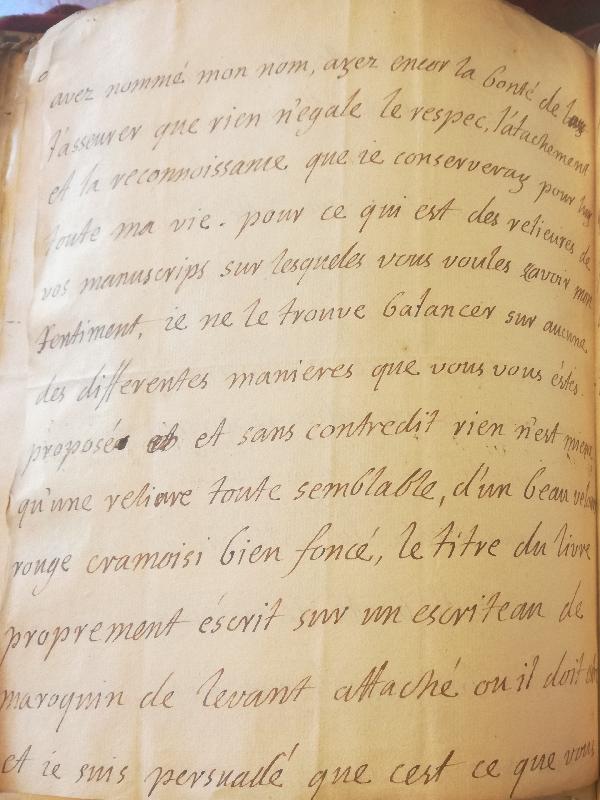 avez nommé mon nom, ayez encor la bonté de luy
l'asseurer que rien n'egale le respec, l'atachement
et la reconnoissance que ie conserveray pour luy
toute ma vie. pour ce qui est des relieures de
vos manuscrips sur lesqueles vous voules savoir mon
sentiment, ie ne le trouve balancer sur aucune
des differentes manieres que vous vous éstes
proposées et sans contredit rien n'est mieux
qu'une relieure toute semblable, d'un beau velours
rouge cramoisi bien foncé, le titre du livre
proprement éscrit sur un escriteau de
maroquin de levant attaché ou il doit
et ie suis persuadé que cest ce que vous